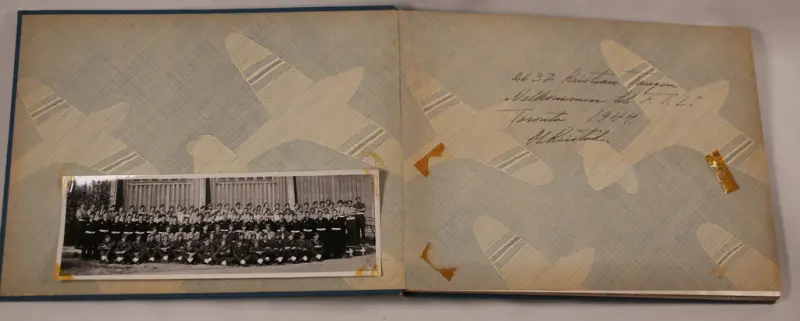 2632 Kristian Haugen
„Velkommen til F.T.L."
Toronto 1944.